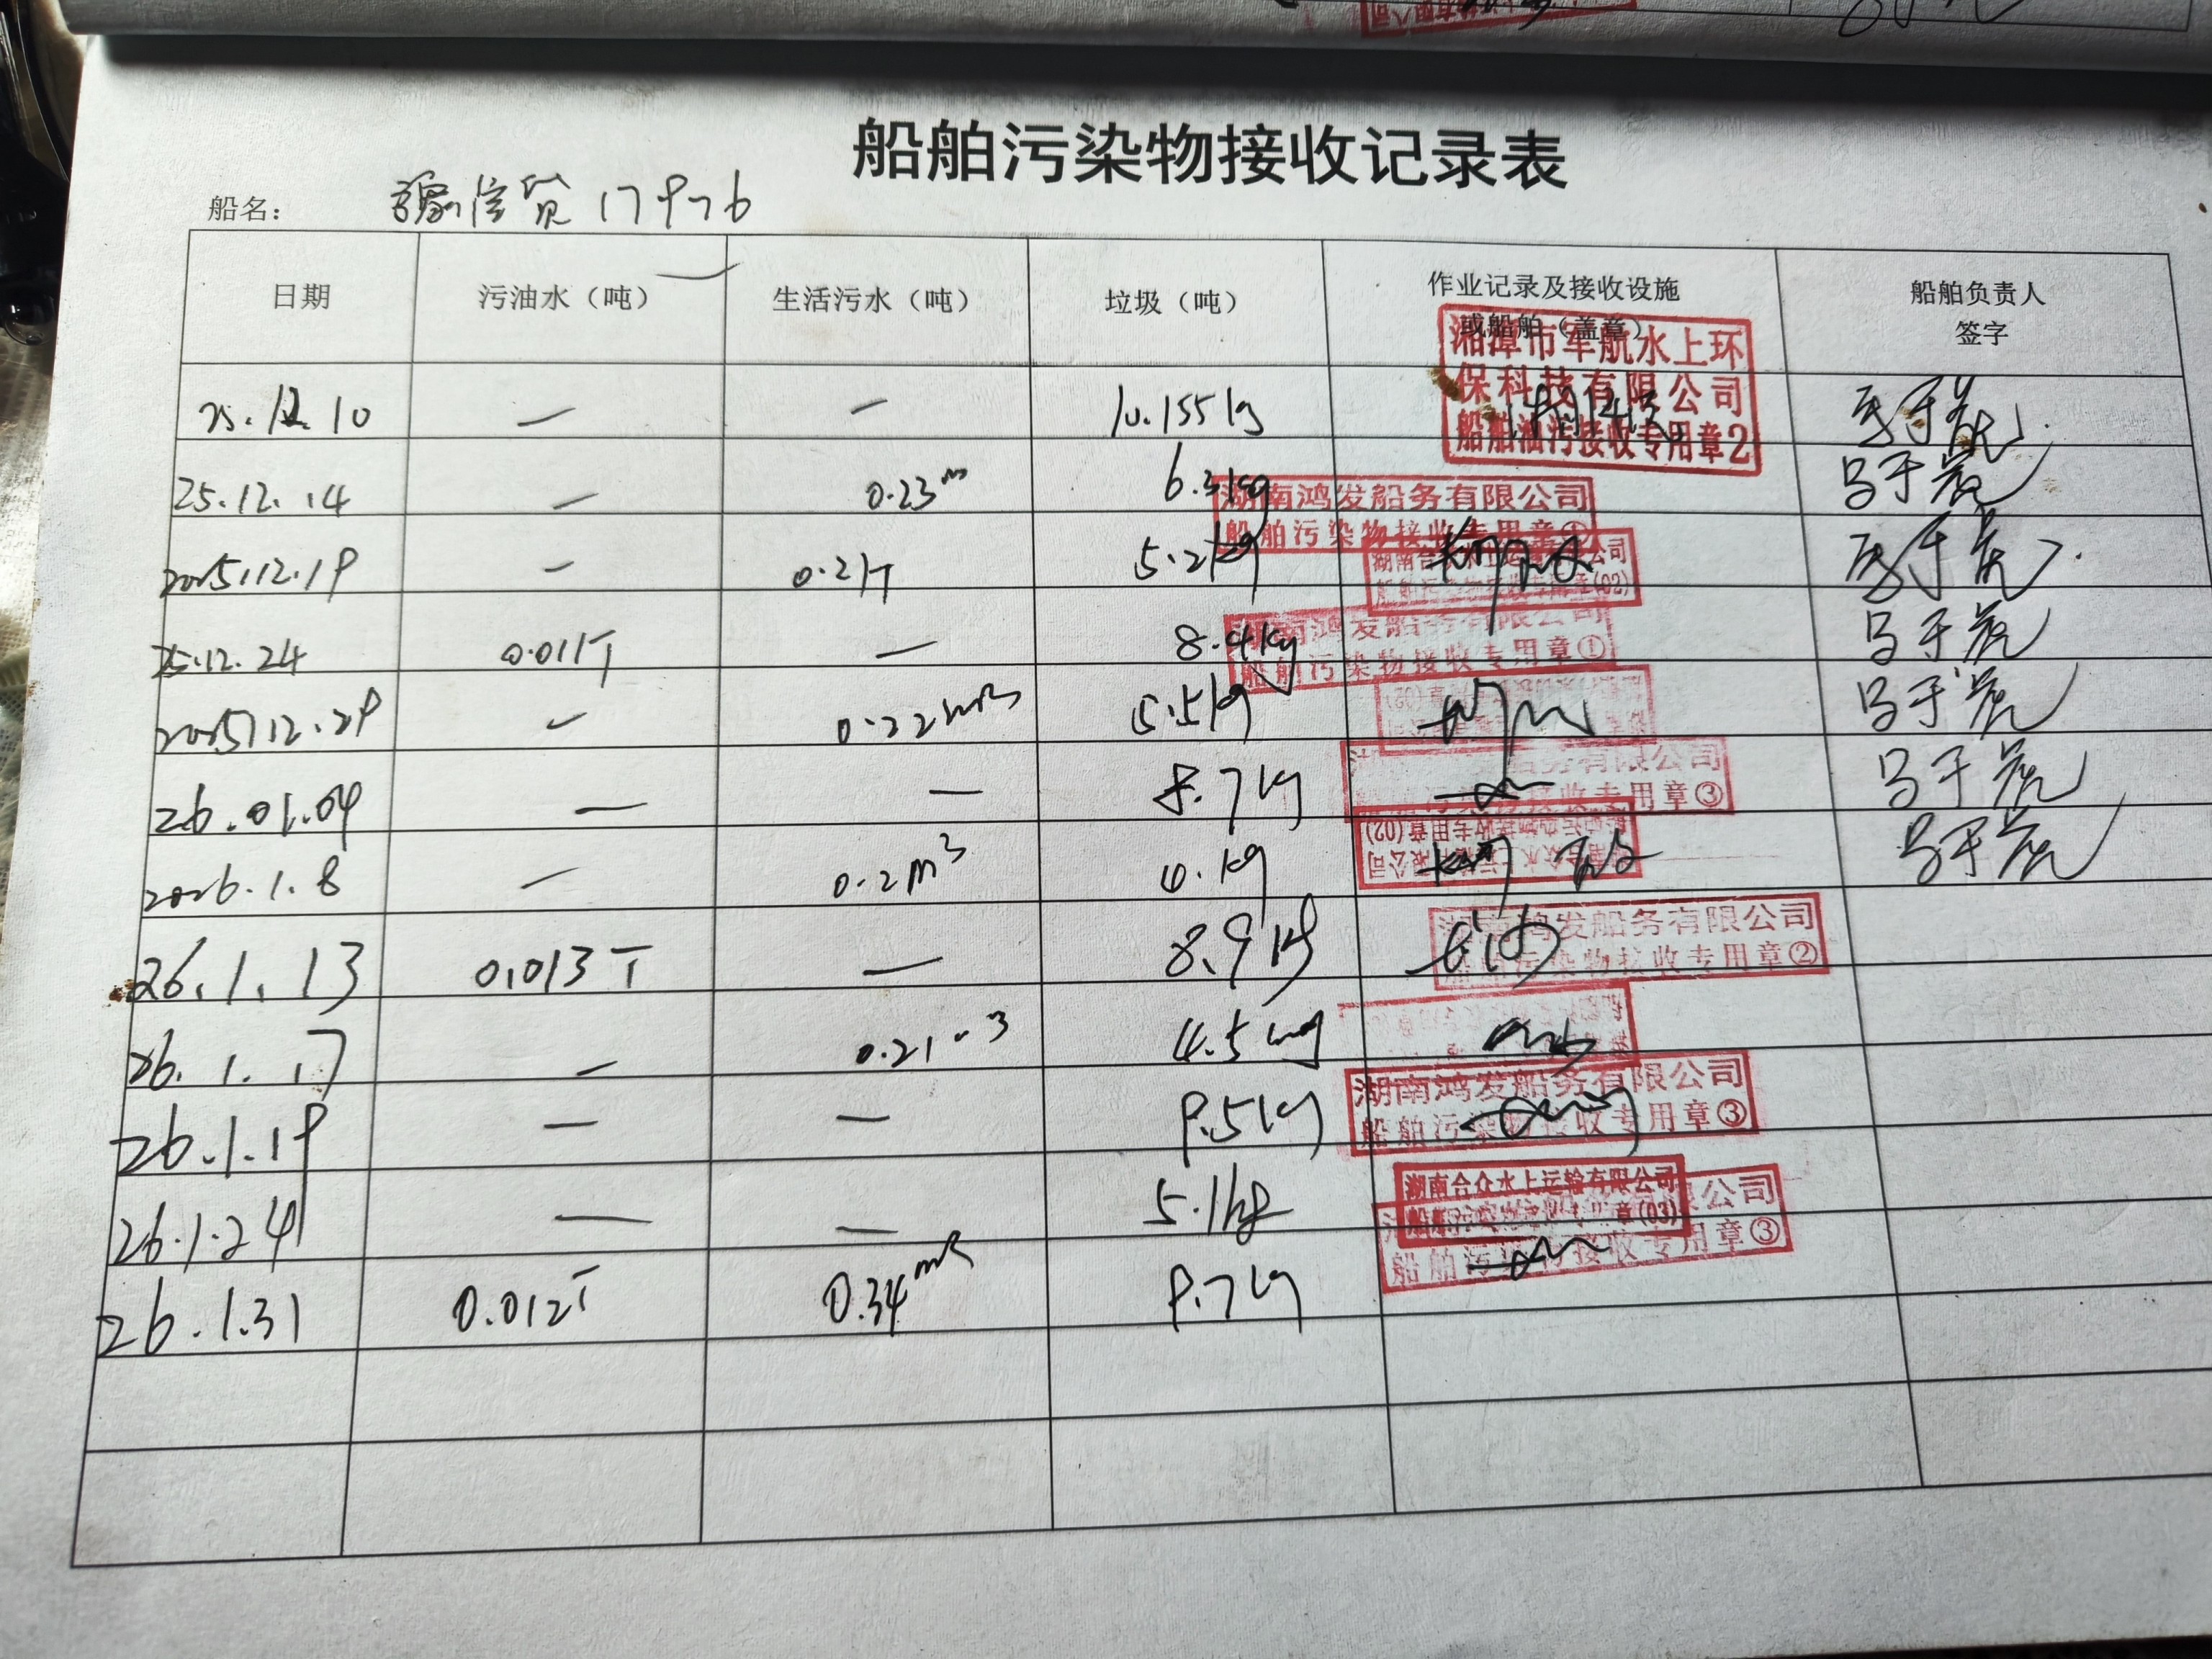 船舶污染物接收记录表
船名： 豫信货17976
日期 污油水（吨） 生活污水（吨） 垃圾（吨） 作业记录及接收设施 或船舶（盖章） 船舶负责人 签字
湘潭市军航水上环
保科技有限公司
船舶油污接收专用章2
25.12.10 — — 10.155kg
25.12.14 — 0.23m 6.3kg
湖南鸿发船务有限公司
船舶污染物接收专用章①
2025.12.19 — 0.21T 5.2kg
湖南合众水上运输有限公司
船舶污染物接收专用章(02)
25.12.24 0.011T — 8.4kg
湖南鸿发船务有限公司
船舶污染物接收专用章①
2025.12.29 — 0.22m3 5.5kg
26.01.04 — — 8.7kg
船务有限公司
接收专用章③
2026.1.8 — 0.2m3 4.1kg
26.1.13 0.013T — 8.9kg
湖南鸿发船务有限公司
船舶污染物接收专用章②
26.1.17 — 0.21m3 4.5kg
26.1.19 — — 9.5kg
湖南鸿发船务有限公司
船舶污染物接收专用章③
26.1.24 — — 5.1kg
湖南合众水上运输有限公司
章(03)
26.1.31 0.012T 0.34m3 9.7kg
限公司
船舶污染物接收专用章③